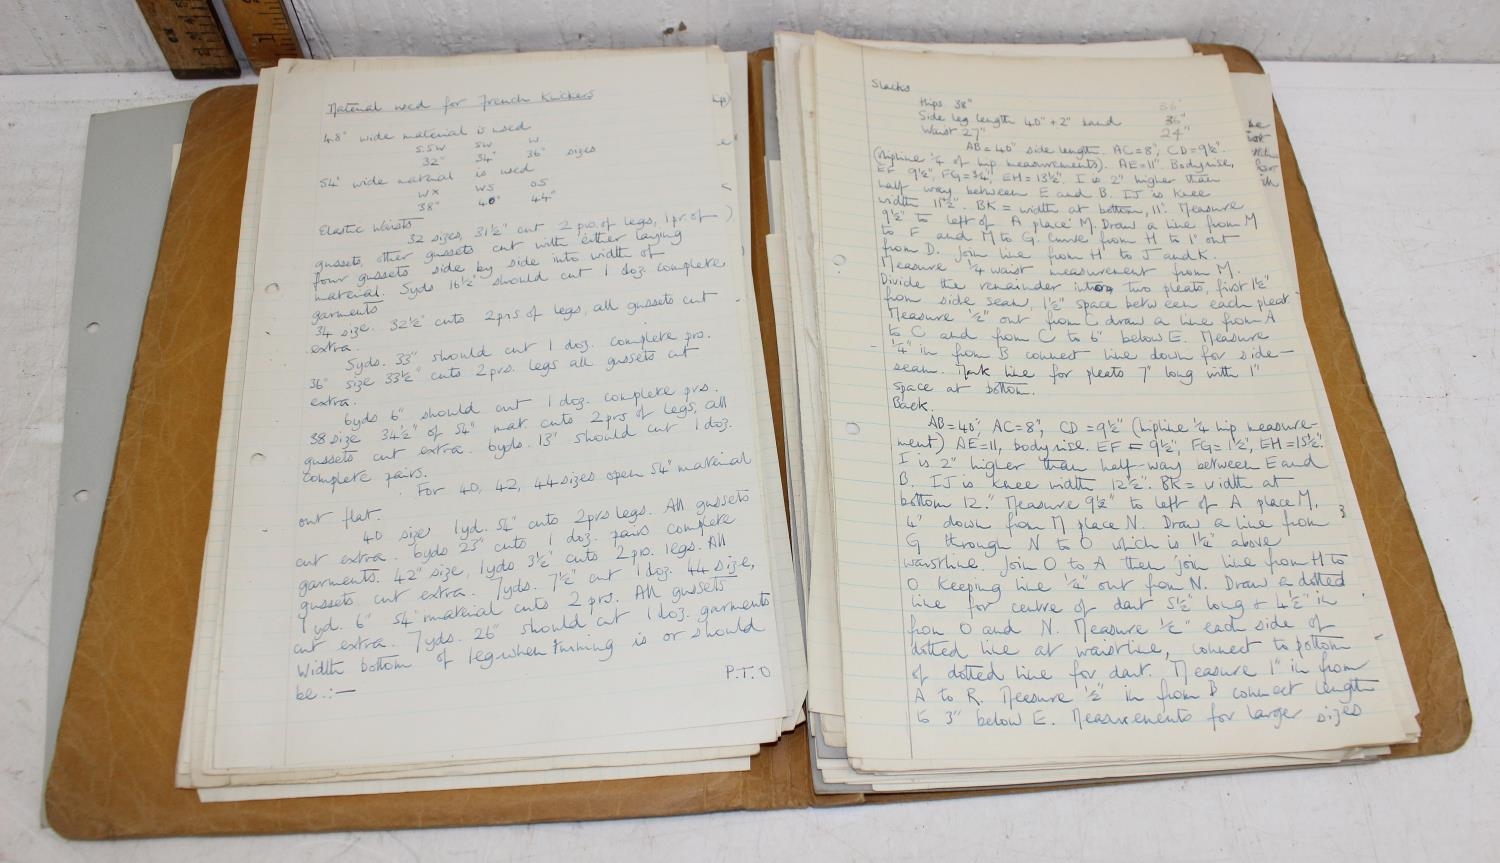 Material used for French Knickers
48" wide material is used
S.SW SW W
32" 34" 36" sizes
54" wide material is used
WX WS OS
38" 40" 44"
Elastic Waists
32 sizes, 31½" cut 2 prs. of legs, 1 pr. of
gussets, other gussets cut with either laying
four gussets side by side into width of
material. 5yds 16½" should cut 1 doz. complete
garments
34 size. 32½" cuts 2prs of legs, all gussets cut
extra.
5yds. 33" should cut 1 doz. complete prs.
36" size 33½" cuts 2prs. legs all gussets cut
extra.
6yds 6" should cut 1 doz. complete prs.
38 size 34½" of 54" mat. cuts 2prs of legs, all
gussets cut extra. 6yds. 13" should cut 1 doz.
complete pairs.
For 40, 42, 44 sizes open 54" material
out flat.
40 size 1yd. 54" cuts 2prs legs. All gussets
cut extra. 6yds 23" cuts 1 doz. pairs complete
garments. 42" size, 1yds 3½" cuts 2 prs. legs. All
gussets cut extra. 7yds. 7½" cut 1 doz. 44 size,
1yd. 6" 54" material cuts 2 prs. All gussets
cut extra. 7yds. 26" should cut 1 doz. garments
Width bottom of leg when turning is or should
be :—
P.T.O
Slacks
Hips 38" 36"
Side leg length 40" + 2" band 36"
Waist 27" 24"
AB = 40" side length. AC = 8", CD = 9½".
(hipline ¼ of hip measurements). AE = 11". Bodyrise,
EF 9½", FG = ¾", EH = 13½". I is 2" higher than
half way between E and B. IJ is knee
width 11½". BK = width at bottom, 11". Measure
9½" to left of A place M. Draw a line from M
to F and M to G. Curve from H to 1" out
from D. Join line from H to J and K.
Measure ¼ waist measurement from M.
Divide the remainder into two pleats, first 1½"
from side seam, 1½" space between each pleat.
Measure ½" out from C draw a line from A
to C and from C to 6" below E. Measure
¼" in from B connect line down for side-
seam. Mark line for pleats 7" long with 1"
space at bottom.
Back.
AB = 40", AC = 8", CD = 9½" (hipline ¼ hip measure-
ment) AE = 11, body rise. EF = 9½", FG = 1½", EH = 15½".
I is 2" higher than half-way between E and
B. IJ is knee width 12½". BK = width at
bottom 12." Measure 9½" to left of A place M,
4" down from M place N. Draw a line from
G through N to O which is 1½" above
waistline. Join O to A then join line from H to
O. Keeping line ¼" out from N. Draw a dotted
line for centre of dart 5½" long & 4½" in
from O and N. Measure ½" each side of
dotted line at waistline, connect to bottom
of dotted line for dart. Measure 1" in from
A to R. Measure ½" in from B connect length
to 3" below E. Measurements for larger sizes